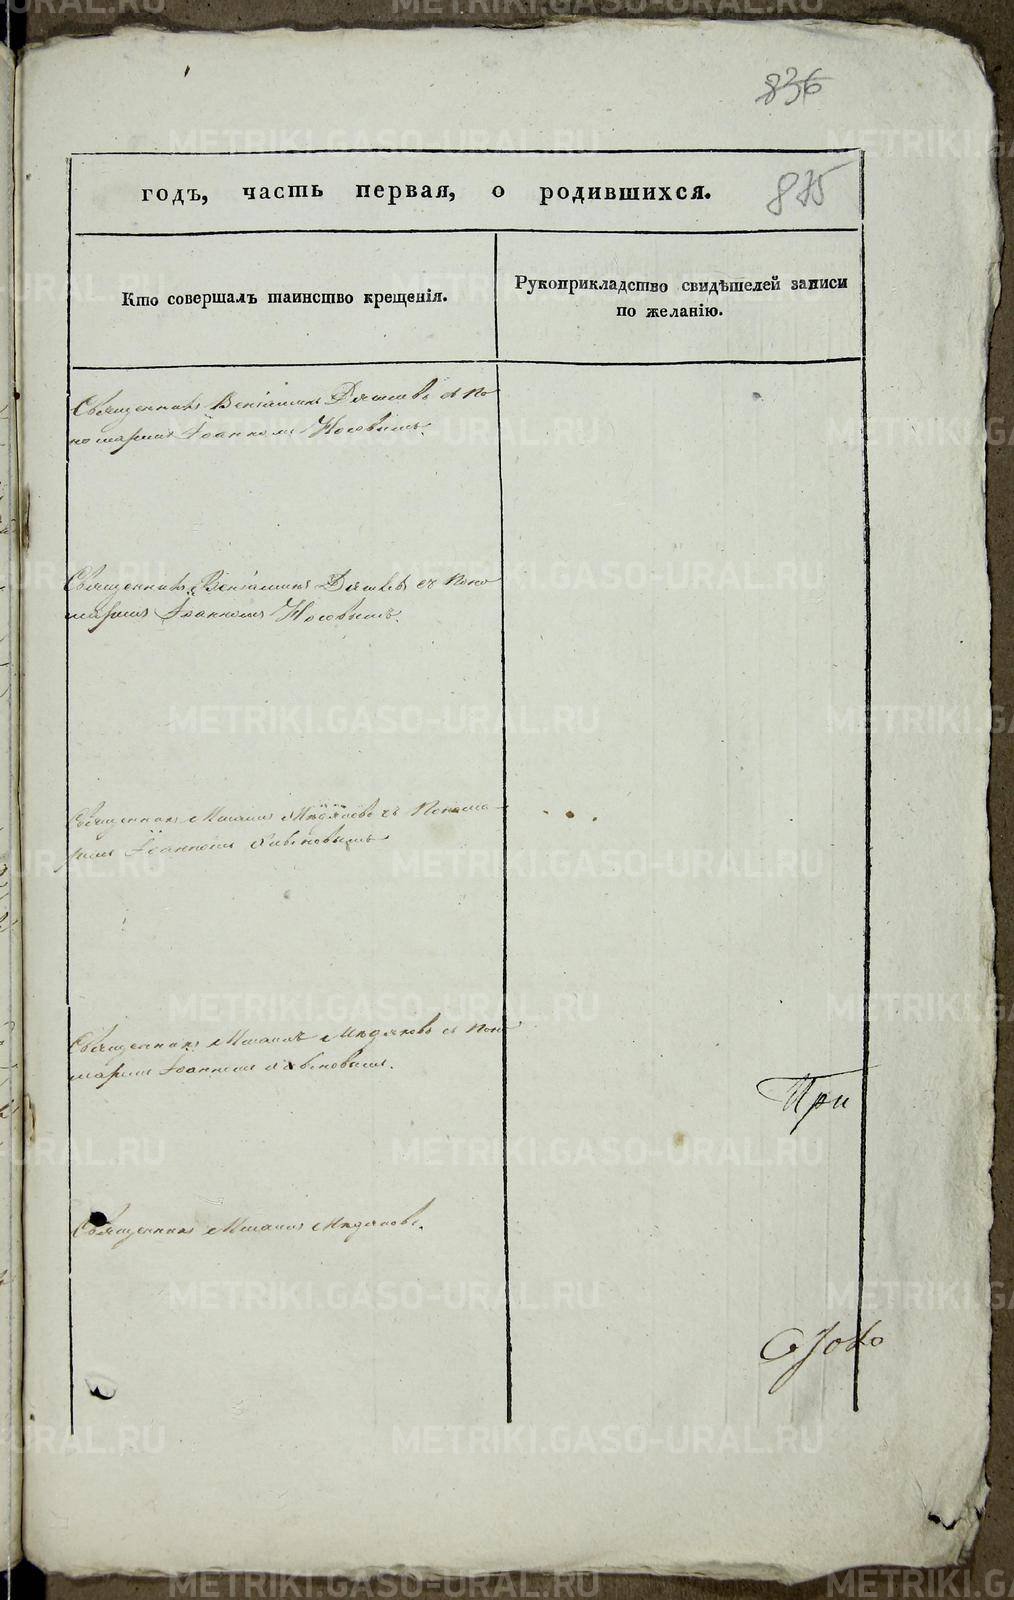 836
годъ, часть первая, о родившихся.
875
Кто совершалъ таинство крещенія.
Рукоприкладство свидѣтелей записи
по желанію.
Священникъ Веніаминъ съ По
номаремъ Іоанномъ Носовымъ.
Священникъ Веніаминъ съ Поно
маремъ Іоанномъ Носовымъ.
Священникъ Михаилъ съ Понома-
ремъ Іоанномъ
Священникъ Михаилъ съ Поно
маремъ Іоанномъ
При
Священникъ Михаилъ
METRIKI.GASO-URAL.RU